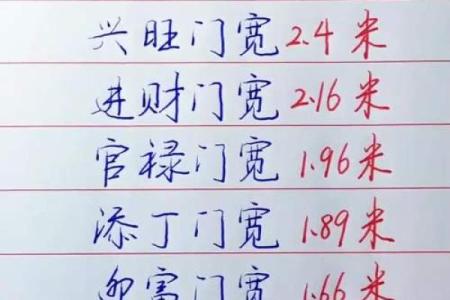 兴旺门宽2.4米
进财门宽2.16米
官禄门宽1.96米
添丁门宽1.89米
迎富门宽1.66米